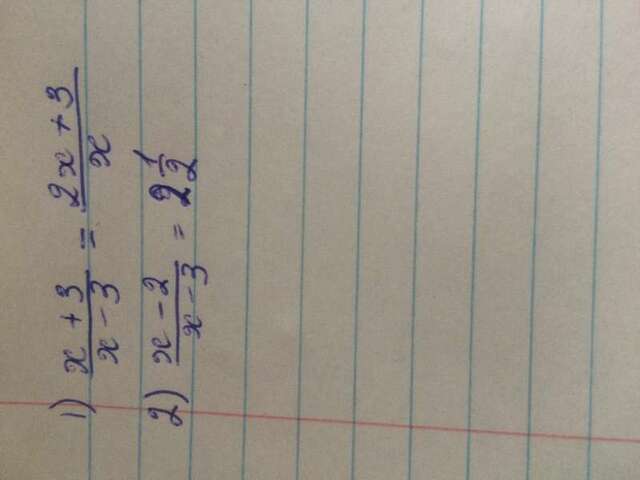 1) \frac{x+3}{x-3} = \frac{2x+3}{x}
2) \frac{x-2}{x-3} = 2\frac{1}{2}